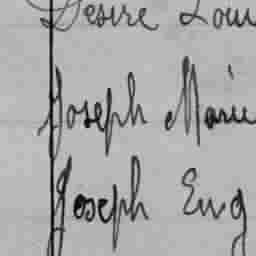 Desire Lou
Joseph Marie
Joseph Eug